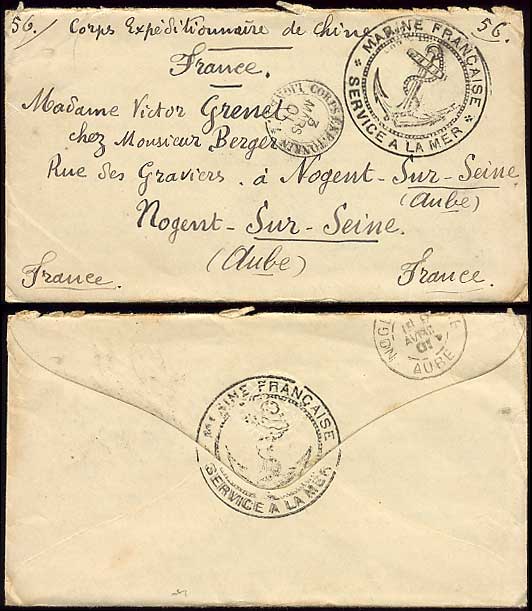 56. Corps Expéditionnaire de Chine 56.
France.
MARINE FRANÇAISE
SERVICE A LA MER
MARS
01
Madame Victor Grenet
chez Monsieur Berger
Rue des Graviers. à Nogent-Sur-Seine
(Aube)
Nogent-Sur-Seine.
(Aube)
France. France.
AVRIL
01
AUBE
MARINE FRANÇAISE
SERVICE A LA MER